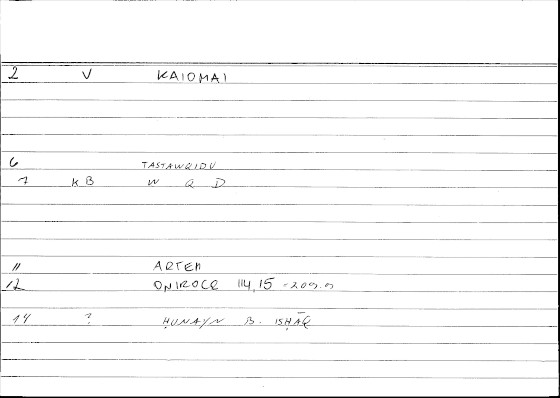 2 V KAIOMAI
6 TASTAWQIDU
7 KB W Q D
11 ARTEM
12 ONIROCR 114,15 -209.9
14 ? ḤUNAYN B. ISḤĀQ